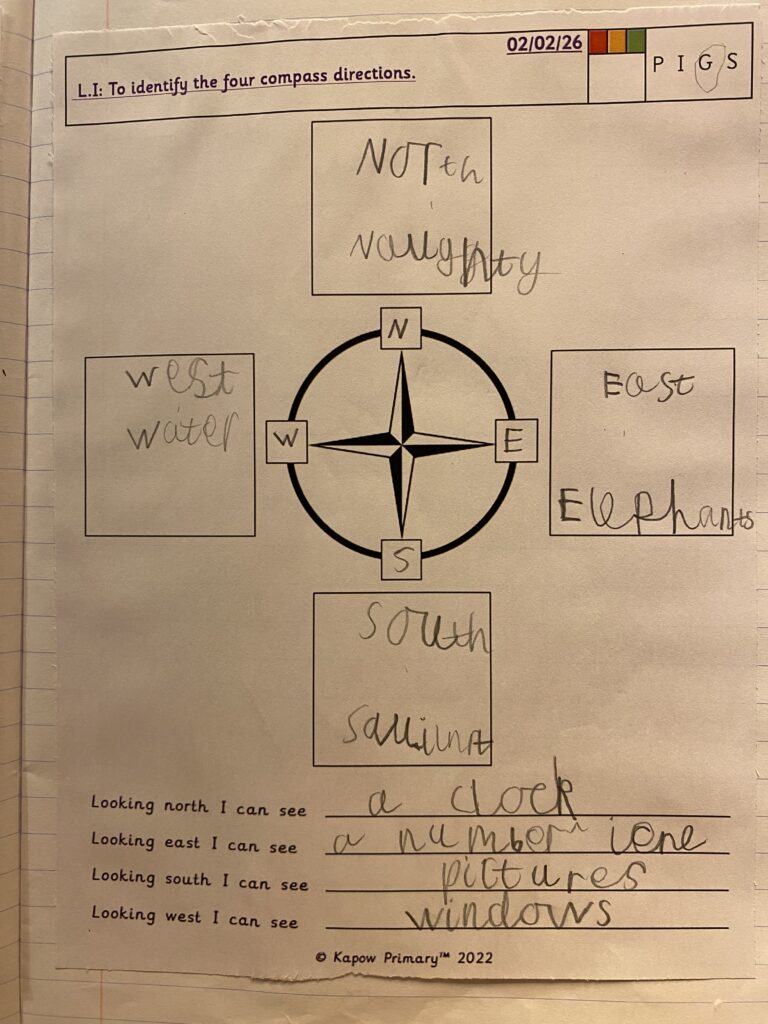 02/02/26
L.I: To identify the four compass directions.
P I G S
NOTth
Naughty
N
west
water
W
E
East
Elephants
S
South
Looking north I can see a clock
Looking east I can see a number
Looking south I can see pictures
Looking west I can see windows
© Kapow Primary™ 2022